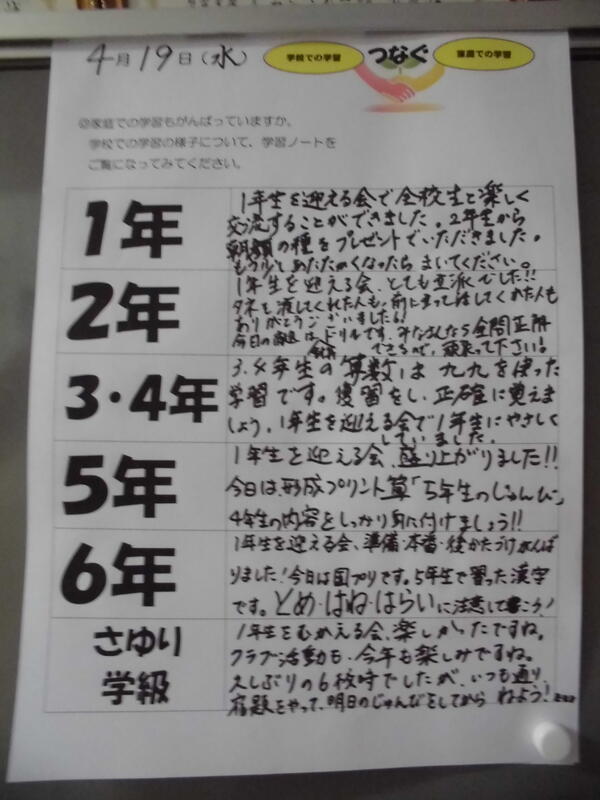 4月19日(水)
学校での学習
つなぐ
家庭での学習
◎家庭での学習もがんばっていますか。
学校での学習の様子について、学習ノートを
ご覧になってみてください。
1年
1年生を迎える会で全校生と楽しく
交流することができました。2年生から
朝顔の種をプレゼントでいただきました。
もう少しあたたかくなったらまいてください。
2年
1年生を迎える会、とても立派でした!!
タネを渡してくれた人も、前に立って話してくれた人も
ありがとうございました!
今日の宿題は ドリルです。みなさんなら全問正解
できるので、頑張って下さい!
3・4年
3.4年生の算数は九九を使った
学習です。復習をし、正確に覚えま
しょう。1年生を迎える会で1年生にやさしく
していました。
5年
1年生を迎える会、盛り上がりました!!
今日は、形成プリント算「5年生のじゅんび」
4年生の内容をしっかり身に付けましょう!!
6年
1年生を迎える会、準備・本番・後かたづけがんば
りました!今日は国プリです。5年生で習った漢字
です。とめ・はね・はらいに注意して書こう!
さゆり
学級
1年生をむかえる会、楽しかったですね。
クラブ活動も、今年も楽しみですね。
久しぶりの6校時でしたが、いつも通り、
宿題をやって、明日のじゅんびをしてから ねよう!